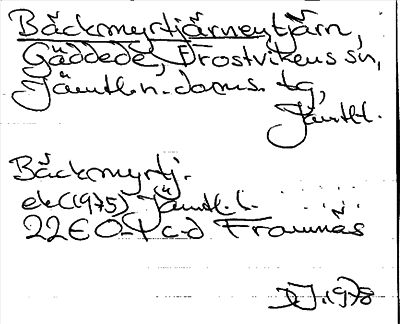 Bäckmyrtjärnen, tjärn,
Gäddede, Frostvikens sn,
Jämtl. n. doms. tg,
Jämtl.
Bäckmyrtj.
ek (1975) Jämtl. l.
22E 0-1 c-d Frannäs
1978